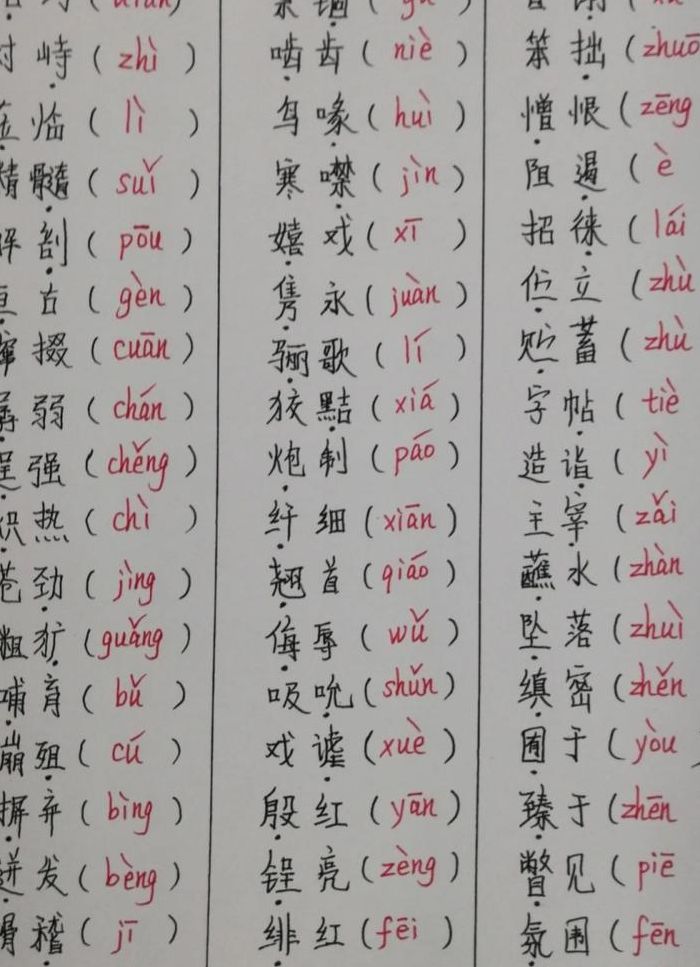 对峙(zhì)
莅临(lì)
精髓(suǐ)
解剖(pōu)
亘古(gèn)
撺掇(cuān)
孱弱(chán)
逞强(chěng)
炽热(chì)
苍劲(jìng)
粗犷(guǎng)
哺育(bǔ)
崩殂(cú)
摒弃(bìng)
迸发(bèng)
滑稽(jī)
啮齿(niè)
鸟喙(huì)
寒噤(jìn)
嬉戏(xī)
隽永(juàn)
骊歌(lí)
狡黠(xiá)
炮制(páo)
纤细(xiān)
翘首(qiáo)
侮辱(wǔ)
吸吮(shǔn)
戏谑(xuè)
殷红(yān)
锃亮(zèng)
绯红(fēi)
笨拙(zhuō
憎恨(zēng
阻遏(è
招徕(lái
伫立(zhù
贮蓄(zhù
字帖(tiè
造诣(yì
主宰(zǎi
蘸水(zhàn
坠落(zhuì
缜密(zhěn
囿于(yòu)
臻于(zhēn
瞥见(piē
氛围(fēn